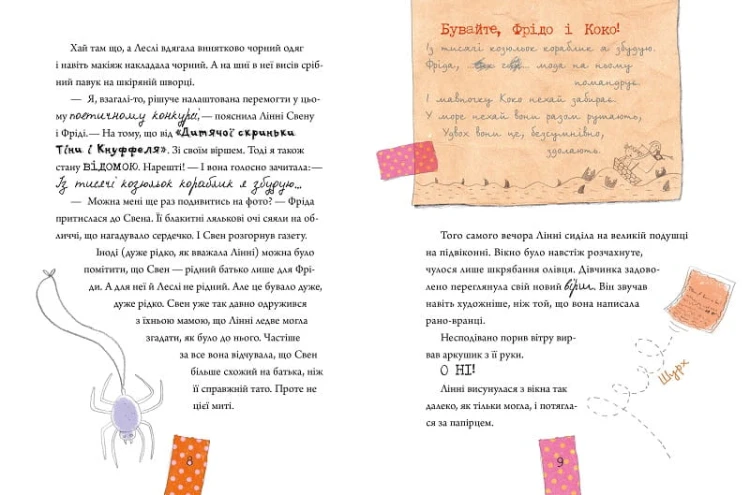 Хай там що, а Леслі вдягала винятково чорний одяг
і навіть макіяж накладала чорний. А на шиї в неї висів сріб-
ний павук на шкіряній шворці.
— Я, взагалі-то, рішуче налаштована перемогти у цьо-
му поетичному конкурсі, — пояснила Лінні Свену
і Фріді. — На тому, що від «Дитячої скриньки
Тіни і Кнуффеля». Зі своїм віршем. Тоді я також
стану ВІДОМОЮ. Нарешті! — І вона голосно зачитала: —
Із тисячі козюльок кораблик я збудую...
— Можна мені ще раз подивитись на фото? — Фріда
притислася до Свена. Її блакитні лялькові очі сяяли на об-
личчі, що нагадувало сердечко. І Свен розгорнув газету.
Іноді (дуже рідко, як вважала Лінні) можна було
помітити, що Свен — рідний батько лише для Фрі-
ди. А для неї й Леслі не рідний. Але це бувало дуже,
дуже рідко. Свен уже так давно одружився
з їхньою мамою, що Лінні ледве могла
згадати, як було до нього. Частіше
за все вона відчувала, що Свен
більше схожий на батька, ніж
її справжній тато. Проте не
цієї миті.
8
Бувайте, Фрідо і Коко!
Із тисячі козюльок кораблик я збудую.
Фріда, мода на ньому
командує.
І мавпочку Коко нехай забирає.
У море нехай вони разом рушають,
Удвох вони це, безсумнівно,
здолають.
Того самого вечора Лінні сиділа на великій подушці
на підвіконні. Вікно було навстіж розчахнуте,
чулося лише шкрябання олівця. Дівчинка задово-
лено переглянула свій новий вірш. Він звучав
навіть художніше, ніж той, що вона написала
рано-вранці.
Несподівано порив вітру вир-
вав аркушик з її руки.
О НІ!
Лінні висунулася з вікна так
далеко, як тільки могла, і потягла-
ся за папірцем.
Шурх
9